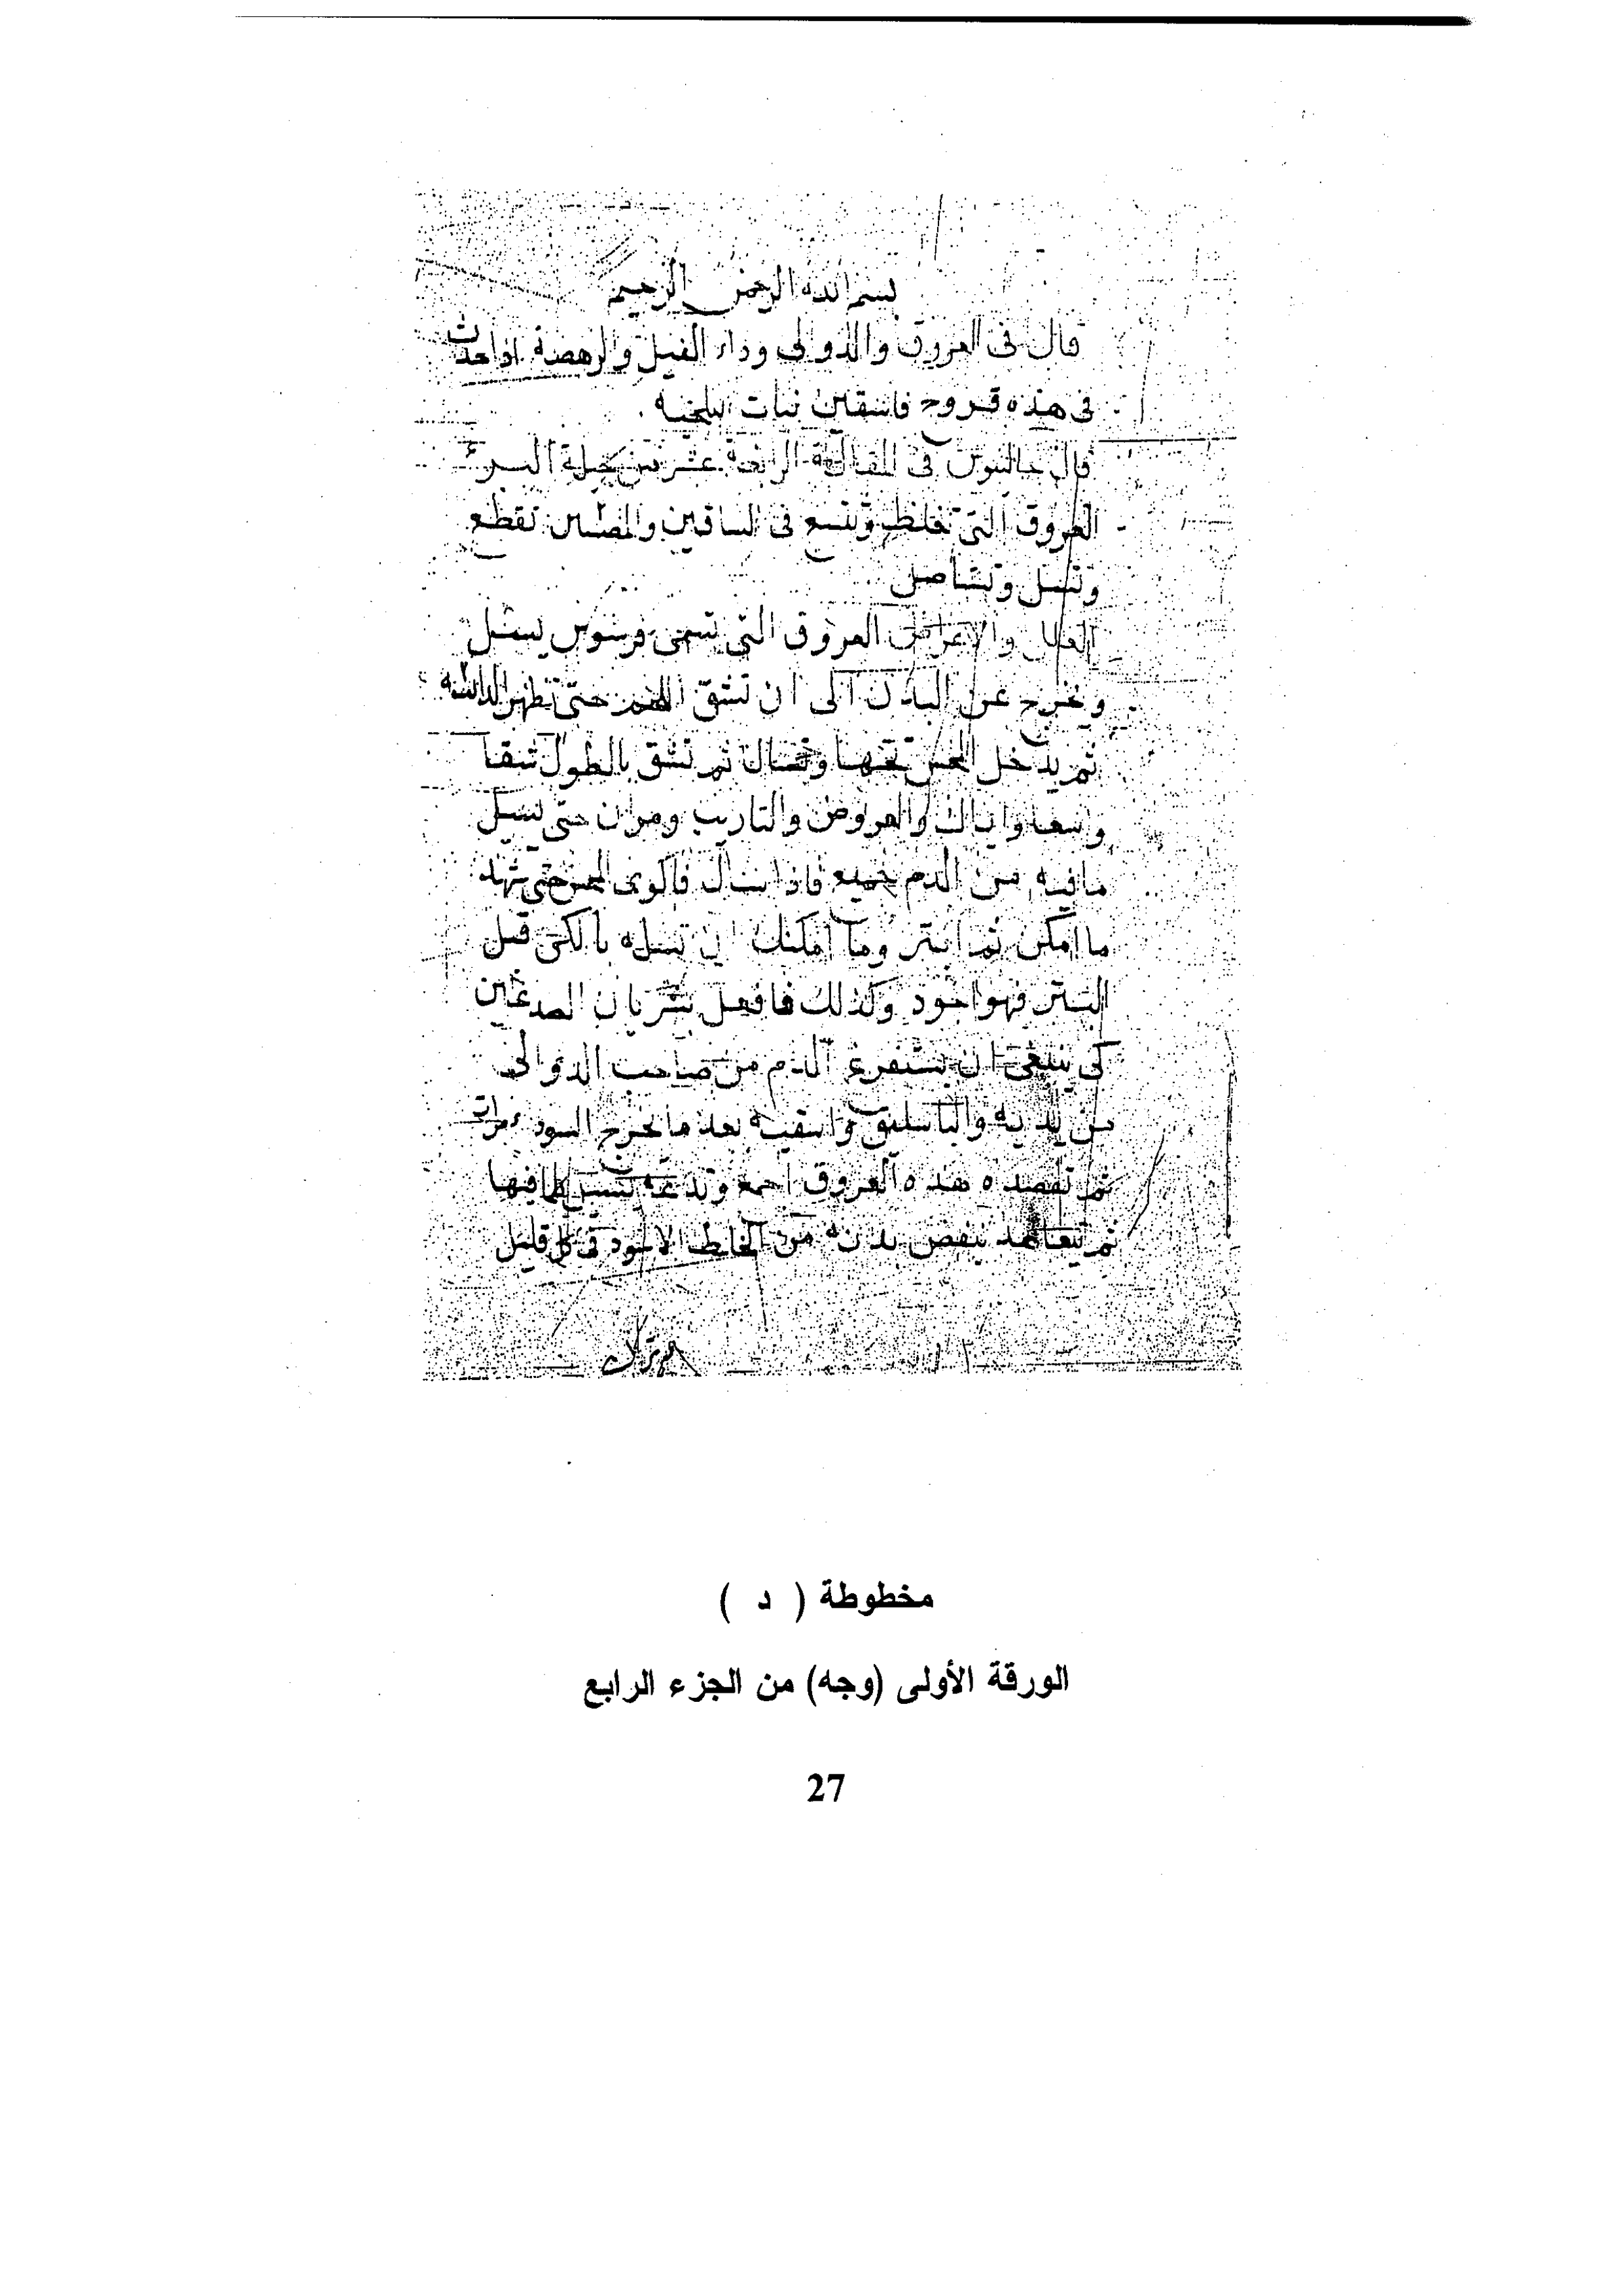 بسم الله الرحمن الرحيم
قال فى العروق والدوالى وداء الفيل والرهصة اذا حدث
فى هذه قروح فاسقين نبات
قال جالينوس فى المقالة الرابعة عشر من حيلة البرء
العروق التى تغلظ وتتسع فى الساقين تقطع
وتسل وتستاصل
العلل والاعراض العروق التى تسمى يسل
ويخرج عن البدن الى ان تشق الجلد حتى تظهر
ثم يدخل المجس تحتها وتشال ثم تشق بالطول شقا
واسعا واياك والعروض والتاريب حتى يسيل
ما فيه من الدم جميع فاذا سال
ما امكن ثم ابتر وما امكنك ان تسله بالكى قبل
البتر فهو اجود وكذلك فافعل بشريان الصدغين
كى ينبغى ان يستفرغ الدم من صاحب الدوالى
من يديه والباسليق واسقيه بعد ما يخرج السوداء مرات
ثم تفصده هذه العروق اجمع وتدعه يسيل كلما فيها
ثم تتعاهد بنفض بدنه من الخلط الاسود فى كل قليل
مخطوطة ( د )
الورقة الأولى (وجه) من الجزء الرابع
27